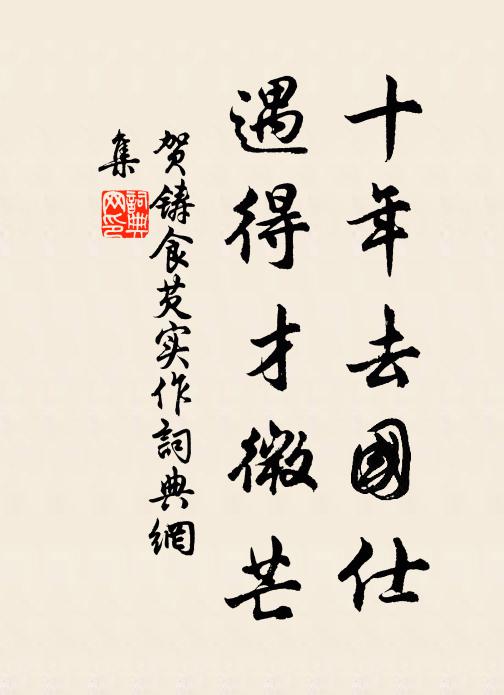 十年去國仕
遇得才微芒
贺铸食芡实作詞典網
集
詞典
网印